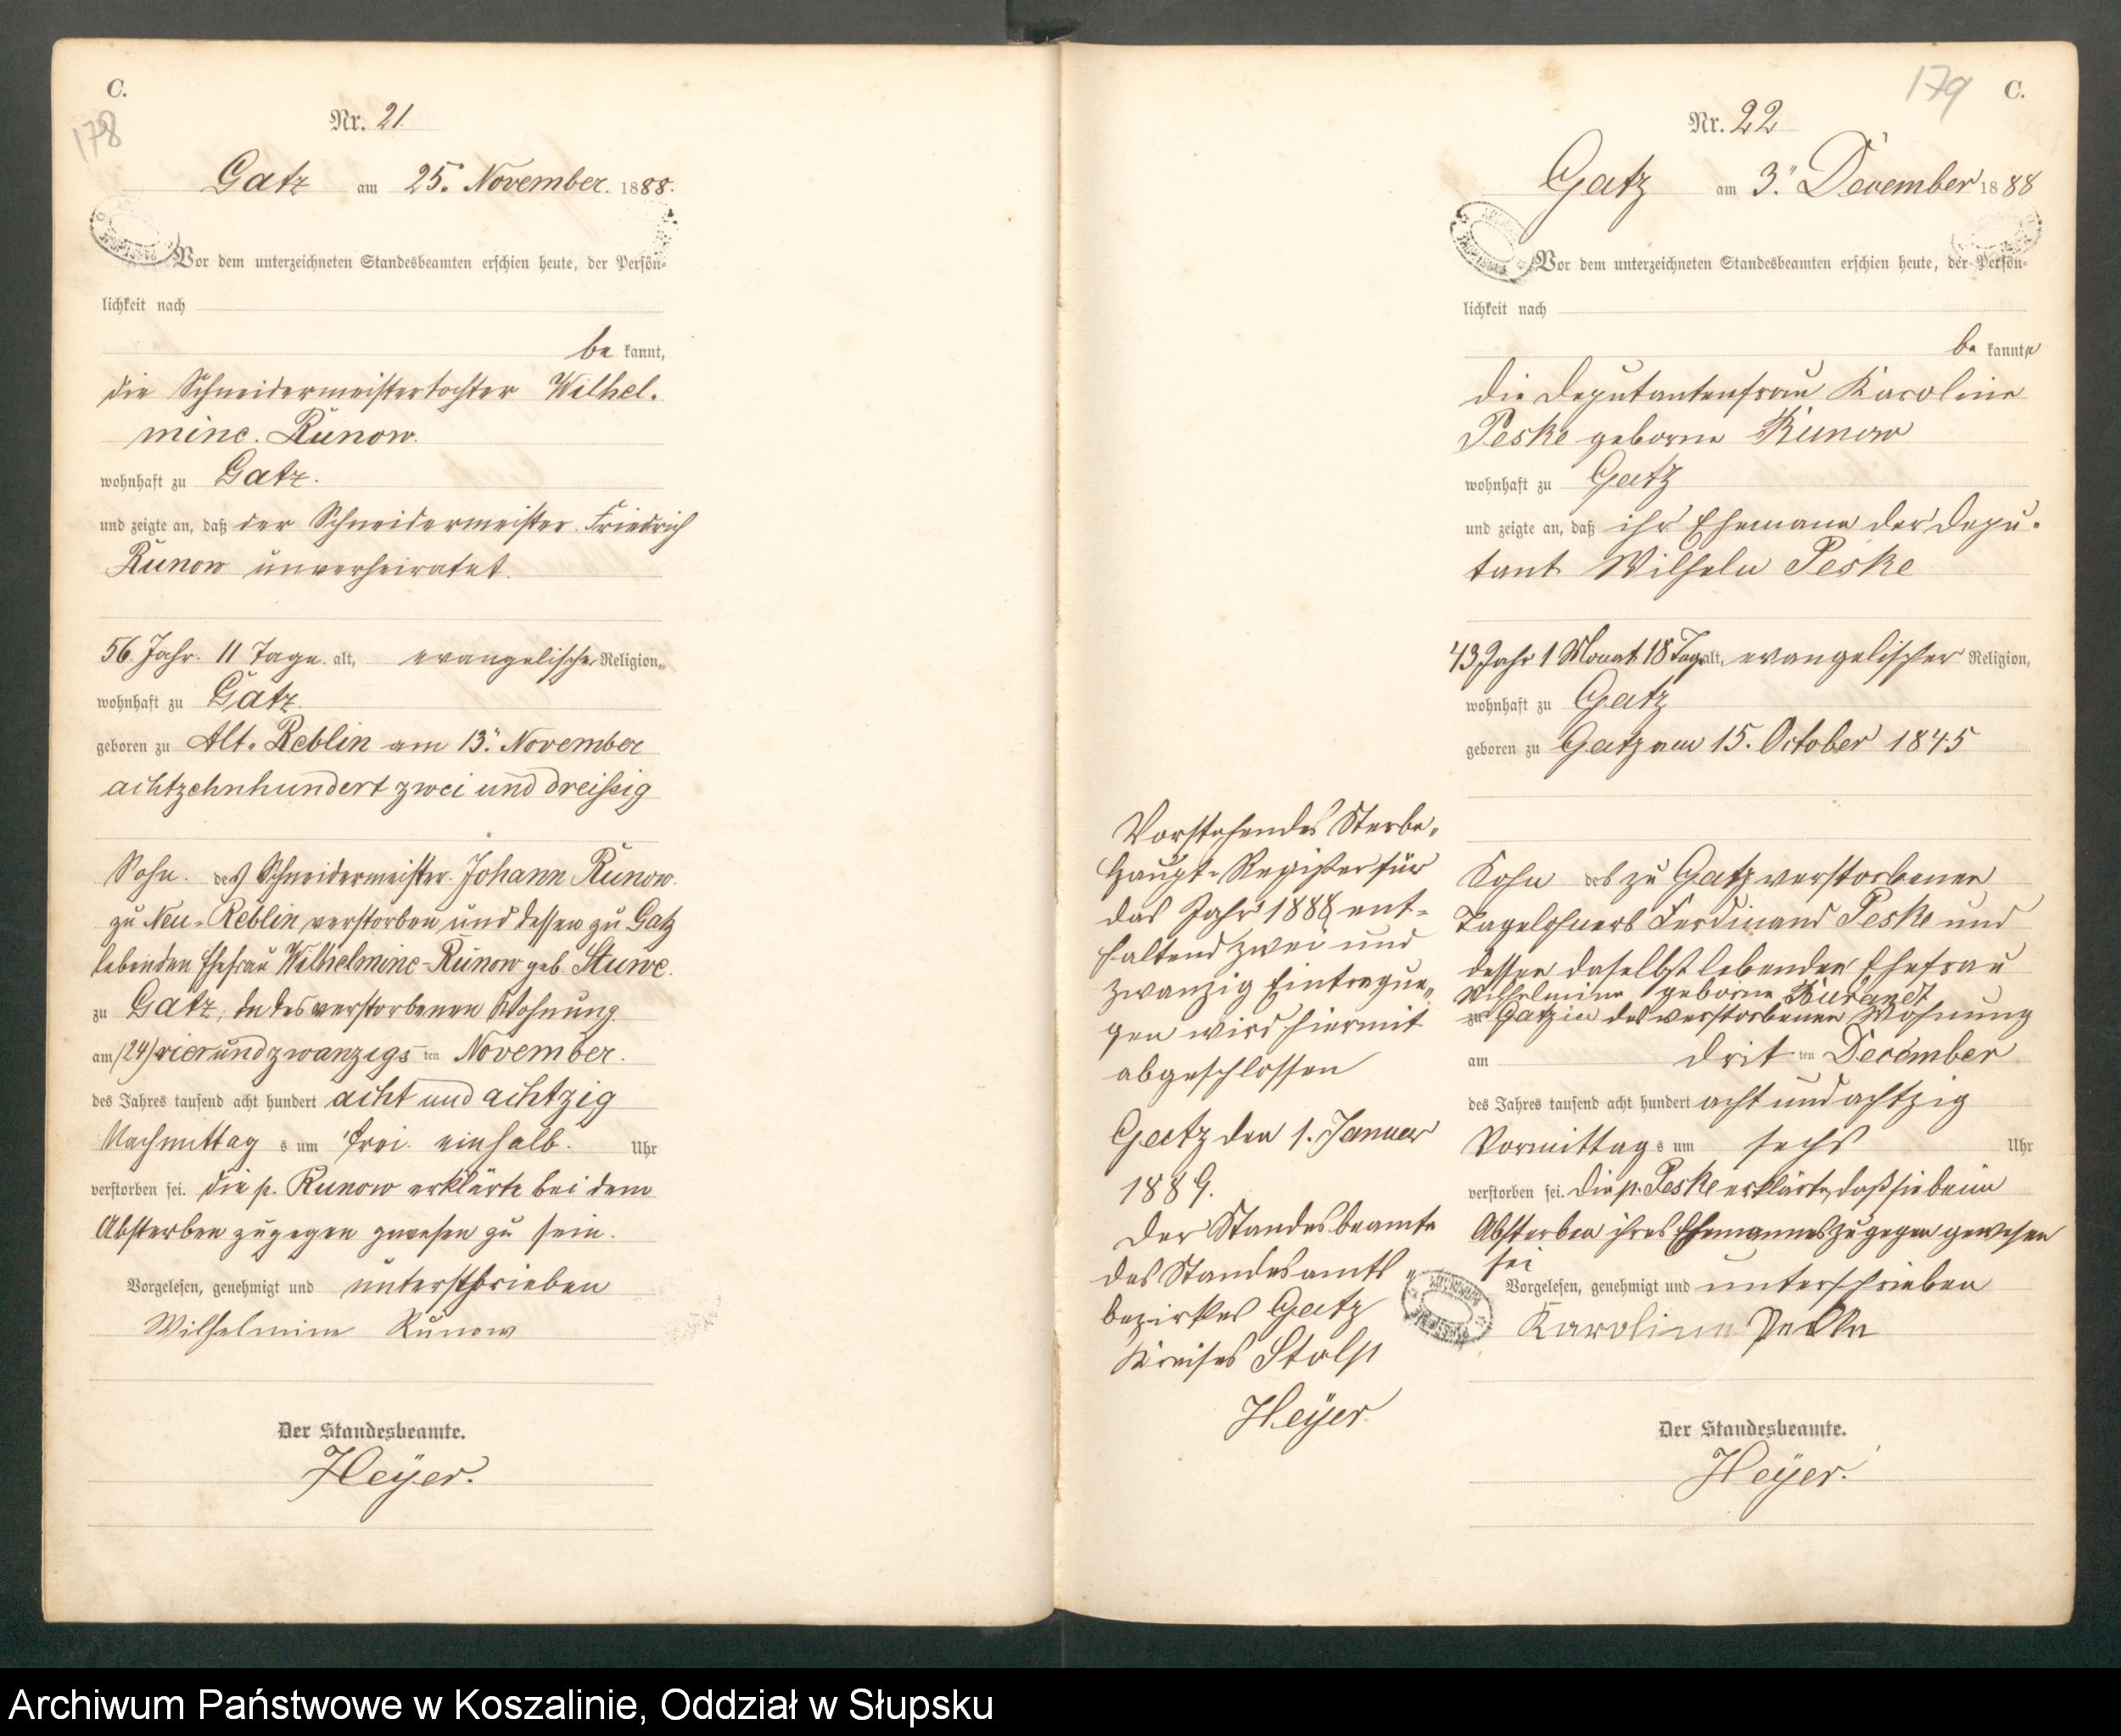 C.
178
Nr. 21.
Gatz am 25. November. 1888.
Vor dem unterzeichneten Standesbeamten erschien heute, der Persön-
lichkeit nach
be kannt,
die Schneidermeistertochter Wilhel-
mine. Runow.
wohnhaft zu Gatz.
und zeigte an, daß der Schneidermeister. Friedrich
Runow unverheiratet.
56. Jahr. 11 Tage. alt, evangelische Religion,
wohnhaft zu Gatz.
geboren zu Alt-Reblin am 13. November
achtzehnhundert zwei und dreissig
Sohn. des Schneidermeister. Johann Runow.
zu Neu-Reblin verstorben und dessen zu Gatz
lebenden Ehefrau Wilhelmine Runow geb. Stuwe.
zu Gatz, in des verstorbenen Wohnung
am (24) vierundzwanzigs ten November.
des Jahres tausend acht hundert acht und achtzig
Nachmittag s um drei. einhalb. Uhr
verstorben sei. die p. Runow erklärte bei dem
Absterben zugegen gewesen zu sein.
Vorgelesen, genehmigt und unterschrieben
Wilhelmine Runow
Der Standesbeamte.
Heyer.
179 C.
Nr. 22
Gatz am 3. December 1888
Vor dem unterzeichneten Standesbeamten erschien heute, der Persön-
lichkeit nach
be kannte
die Deputantenfrau Karoline
Peske geborne Runow
wohnhaft zu Gatz
und zeigte an, daß ihr Ehemann der Depu-
tant Wilhelm Peske
43 Jahr 1 Monat 18 Tage alt, evangelischer Religion,
wohnhaft zu Gatz
geboren zu Gatz am 15. October 1845
Sohn des zu Gatz verstorbenen
Tagelöhners Ferdinand Peske und
dessen daselbst lebenden Ehefrau
Wilhelmine geborne
zu Gatz in des verstorbenen Wohnung
am drit ten December
des Jahres tausend acht hundert acht und achtzig
Vormittag s um sechs Uhr
verstorben sei. Die p. Peske erklärte, daß sie beim
Absterben ihres Ehemannes zugegen gewesen
sei
Vorgelesen, genehmigt und unterschrieben
Karoline Peske
Der Standesbeamte.
Heyer.
Vorstehendes Sterbe-
Haupt-Register für
das Jahr 1888 ent-
haltend zwei und
zwanzig Eintragun-
gen wird hiermit
abgeschlossen
Gatz den 1. Januar
1889.
Der Standesbeamte
des Standesamts-
bezirkes Gatz
Kreises Stolp
Heyer
Archiwum Państwowe w Koszalinie, Oddział w Słupsku